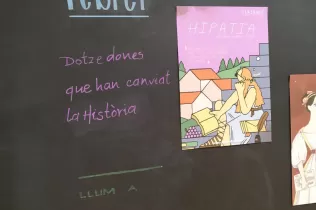 Febrer
Dotze dones
que han canviat
la Història
HIPATIA
LLUM A